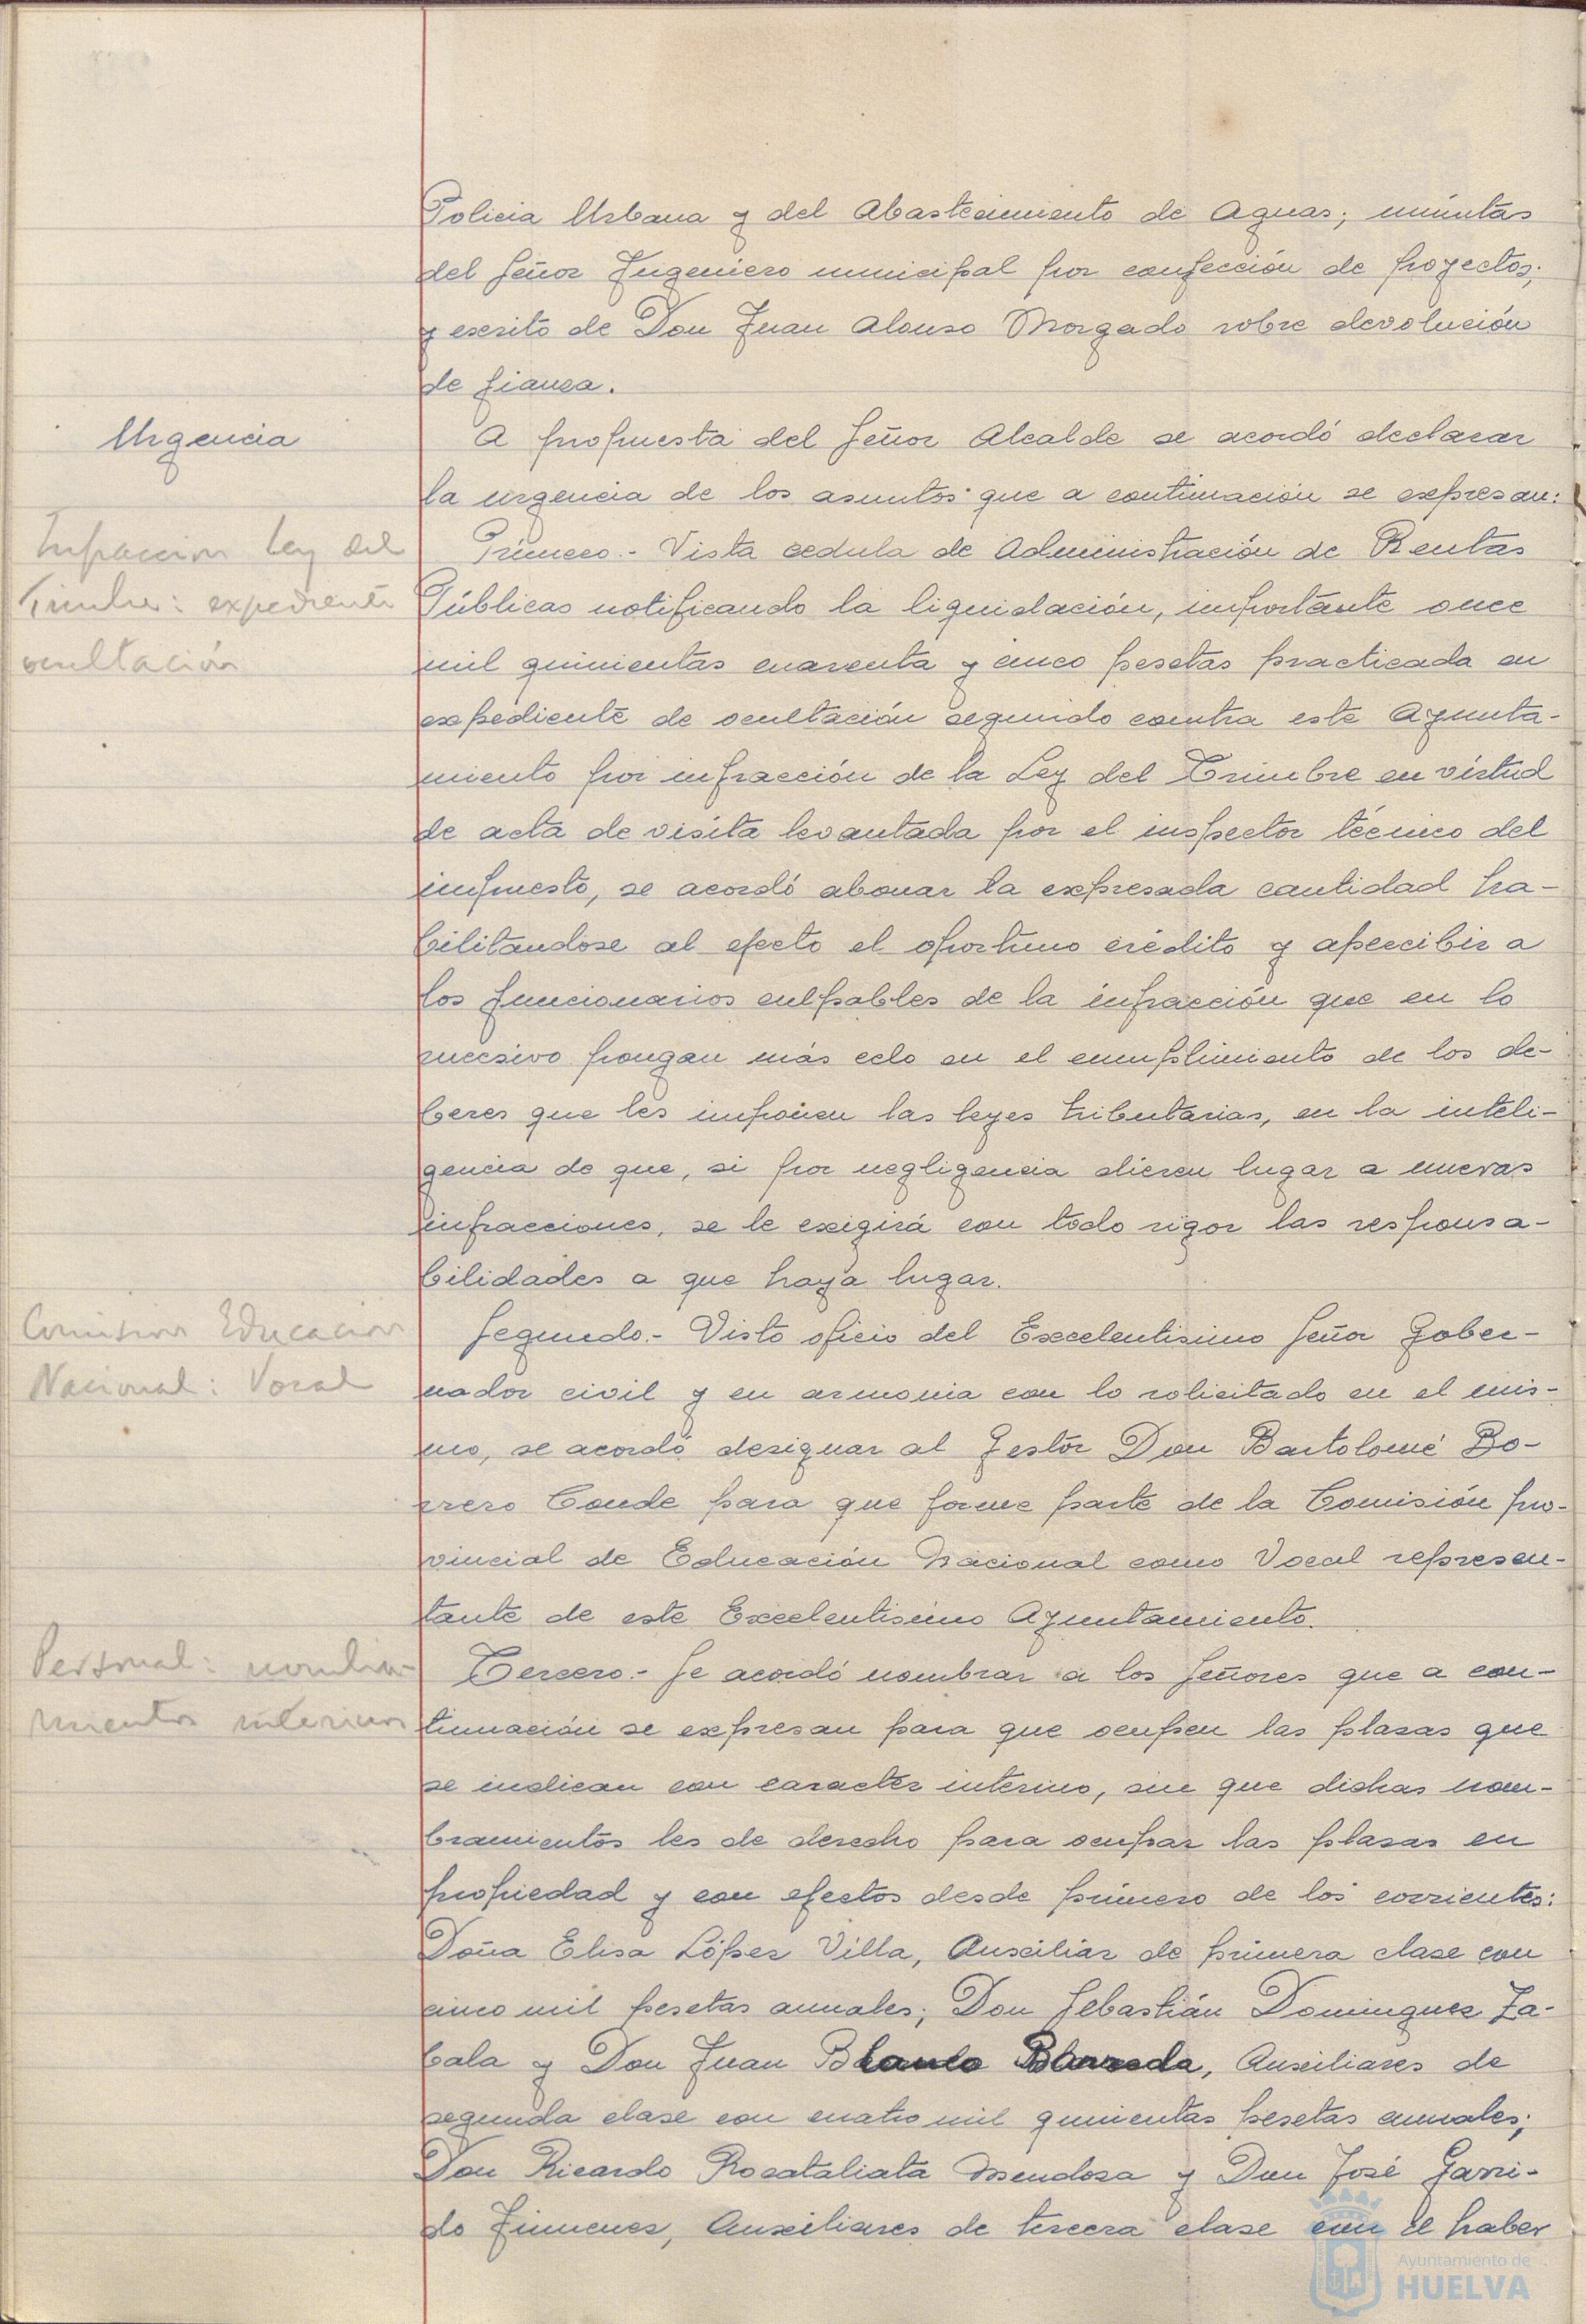 Policia Urbana y del Abastecimiento de Aguas; minutas
del Señor Ingeniero municipal por confección de proyectos;
y escrito de Don Juan Alonso Morgado sobre devolución
de fianza.
Urgencia
A propuesta del Señor Alcalde se acordó declarar
la urgencia de los asuntos que a continuación se expresan:
Infraccion Ley del
Timbre: expediente
ocultación
Primero.- Vista cedula de Administración de Rentas
Públicas notificando la liquidación, importante once
mil quinientas cuarenta y cinco pesetas practicada en
expediente de ocultación seguido contra este Ayunta-
miento por infracción de la Ley del Trimbre en virtud
de acta de visita levantada por el inspector técnico del
impuesto, se acordó abonar la expresada cantidad ha-
bilitandose al efecto el oportuno crédito y apercibir a
los funcionarios culpables de la infracción que en lo
sucesivo pongan más celo en el cumplimiento de los de-
beres que les imponen las leyes tributarias, en la inteli-
gencia de que, si por negligencia dieren lugar a nuevas
infracciones, se le exigirá con todo rigor las responsa-
bilidades a que haya lugar.
Comision Educacion
Nacional: Vocal
Segundo.- Visto oficio del Excelentisimo Señor Gober-
nador civil y en armonia con lo solicitado en el mis-
mo, se acordó designar al Gestor Don Bartolomé Bo-
rrero Conde para que forme parte de la Comisión pro-
vincial de Educación Nacional como Vocal represen-
tante de este Excelentisimo Ayuntamiento.
Personal: nombra-
mientos interinos
Tercero.- Se acordó nombrar a los Señores que a con-
tinuación se expresan para que ocupen las plazas que
se indican con caracter interino, sin que dichas nom-
bramientos les de derecho para ocupar las plazas en
propiedad y con efectos desde primero de los corrientes:
Doña Elisa López Villa, Auxiliar de primera clase con
cinco mil pesetas anuales; Don Sebastián Dominguez Za-
bala y Don Juan Blanco, Auxiliares de
segunda clase con cuatro mil quinientas pesetas anuales;
Don Ricardo Rocataliata Mendoza y Don José Garri-
do Jimenez, Auxiliares de tercera clase con el haber
Ayuntamiento de
HUELVA